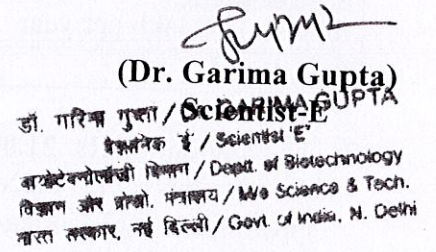 (Dr. Garima Gupta)
Scientist-E
डॉ. गरिमा गुप्ता / Dr. GARIMA GUPTA
वैज्ञानिक 'ई' / Scientist 'E'
बायोटेक्नोलॉजी विभाग / Deptt. of Biotechnology
विज्ञान और प्रौद्यो. मंत्रालय / M/o Science & Tech.
भारत सरकार, नई दिल्ली / Govt. of India, N. Delhi